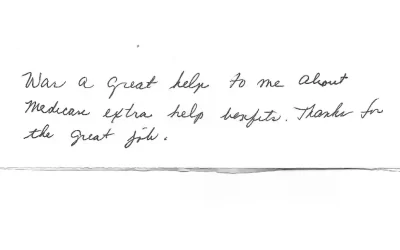 Was a great help to me about
Medicare extra help benefits. Thanks for
the great job.